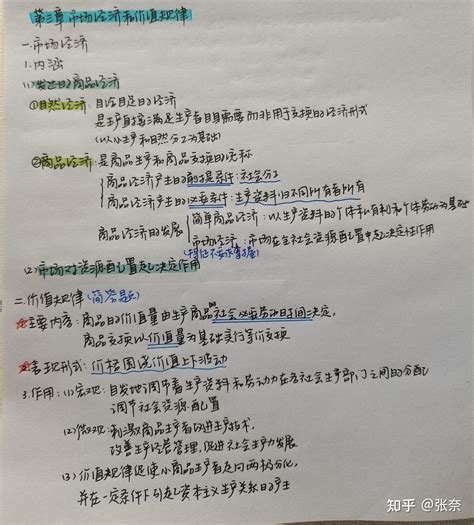 第三章 市场经济和价值规律
一.市场经济
1.内涵
(1)发达的商品经济
①自然经济:自给自足的经济
是生产直接满足生产者自身需要而非用于交换的经济形式
(以小生产和自然分工为基础)
②商品经济:是商品生产和商品交换的总称
商品经济产生的前提条件:社会分工
商品经济产生的必要条件:生产资料归不同所有者所有
商品经济的发展 简单商品经济:以生产资料的个体私有制和个体劳动为基础
市场经济:市场在全社会资源配置中起决定性作用
(特征不要求掌握)
(2)市场对资源配置起决定作用
二.价值规律(简答题)
主要内容:商品的价值量由生产商品的社会必要劳动时间决定,
商品交换以价值量为基础实行等价交换
表现形式:价格围绕价值上下波动
3.作用:(1)宏观:自发地调节着生产资料和劳动力在各社会生产部门之间的分配
调节社会资源配置
(2)微观:刺激商品生产者改进生产技术,
改善生产经营管理,促进社会生产力发展
(3)价值规律促使小商品生产者走向两极分化,
并在一定条件下引起资本主义生产关系的产生
知乎 @张奈